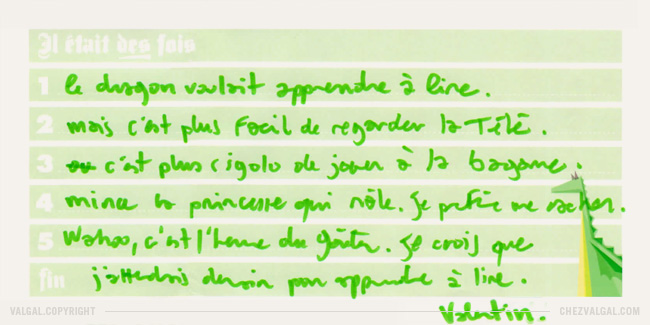 Il était des fois
1 le dragon voulait apprendre à lire.
2 mais c'est plus facil de regarder la Télé.
3 ou c'est plus rigolo de jouer à la bagarre.
4 mince la princesse qui râle. je préfère me cacher.
5 Wahoo, c'est l'heure du goûter. Je crois que
fin j'attendrais demain pour apprendre à lire.
Valentin.
VALGAL.COPYRIGHT CHEZVALGAL.COM